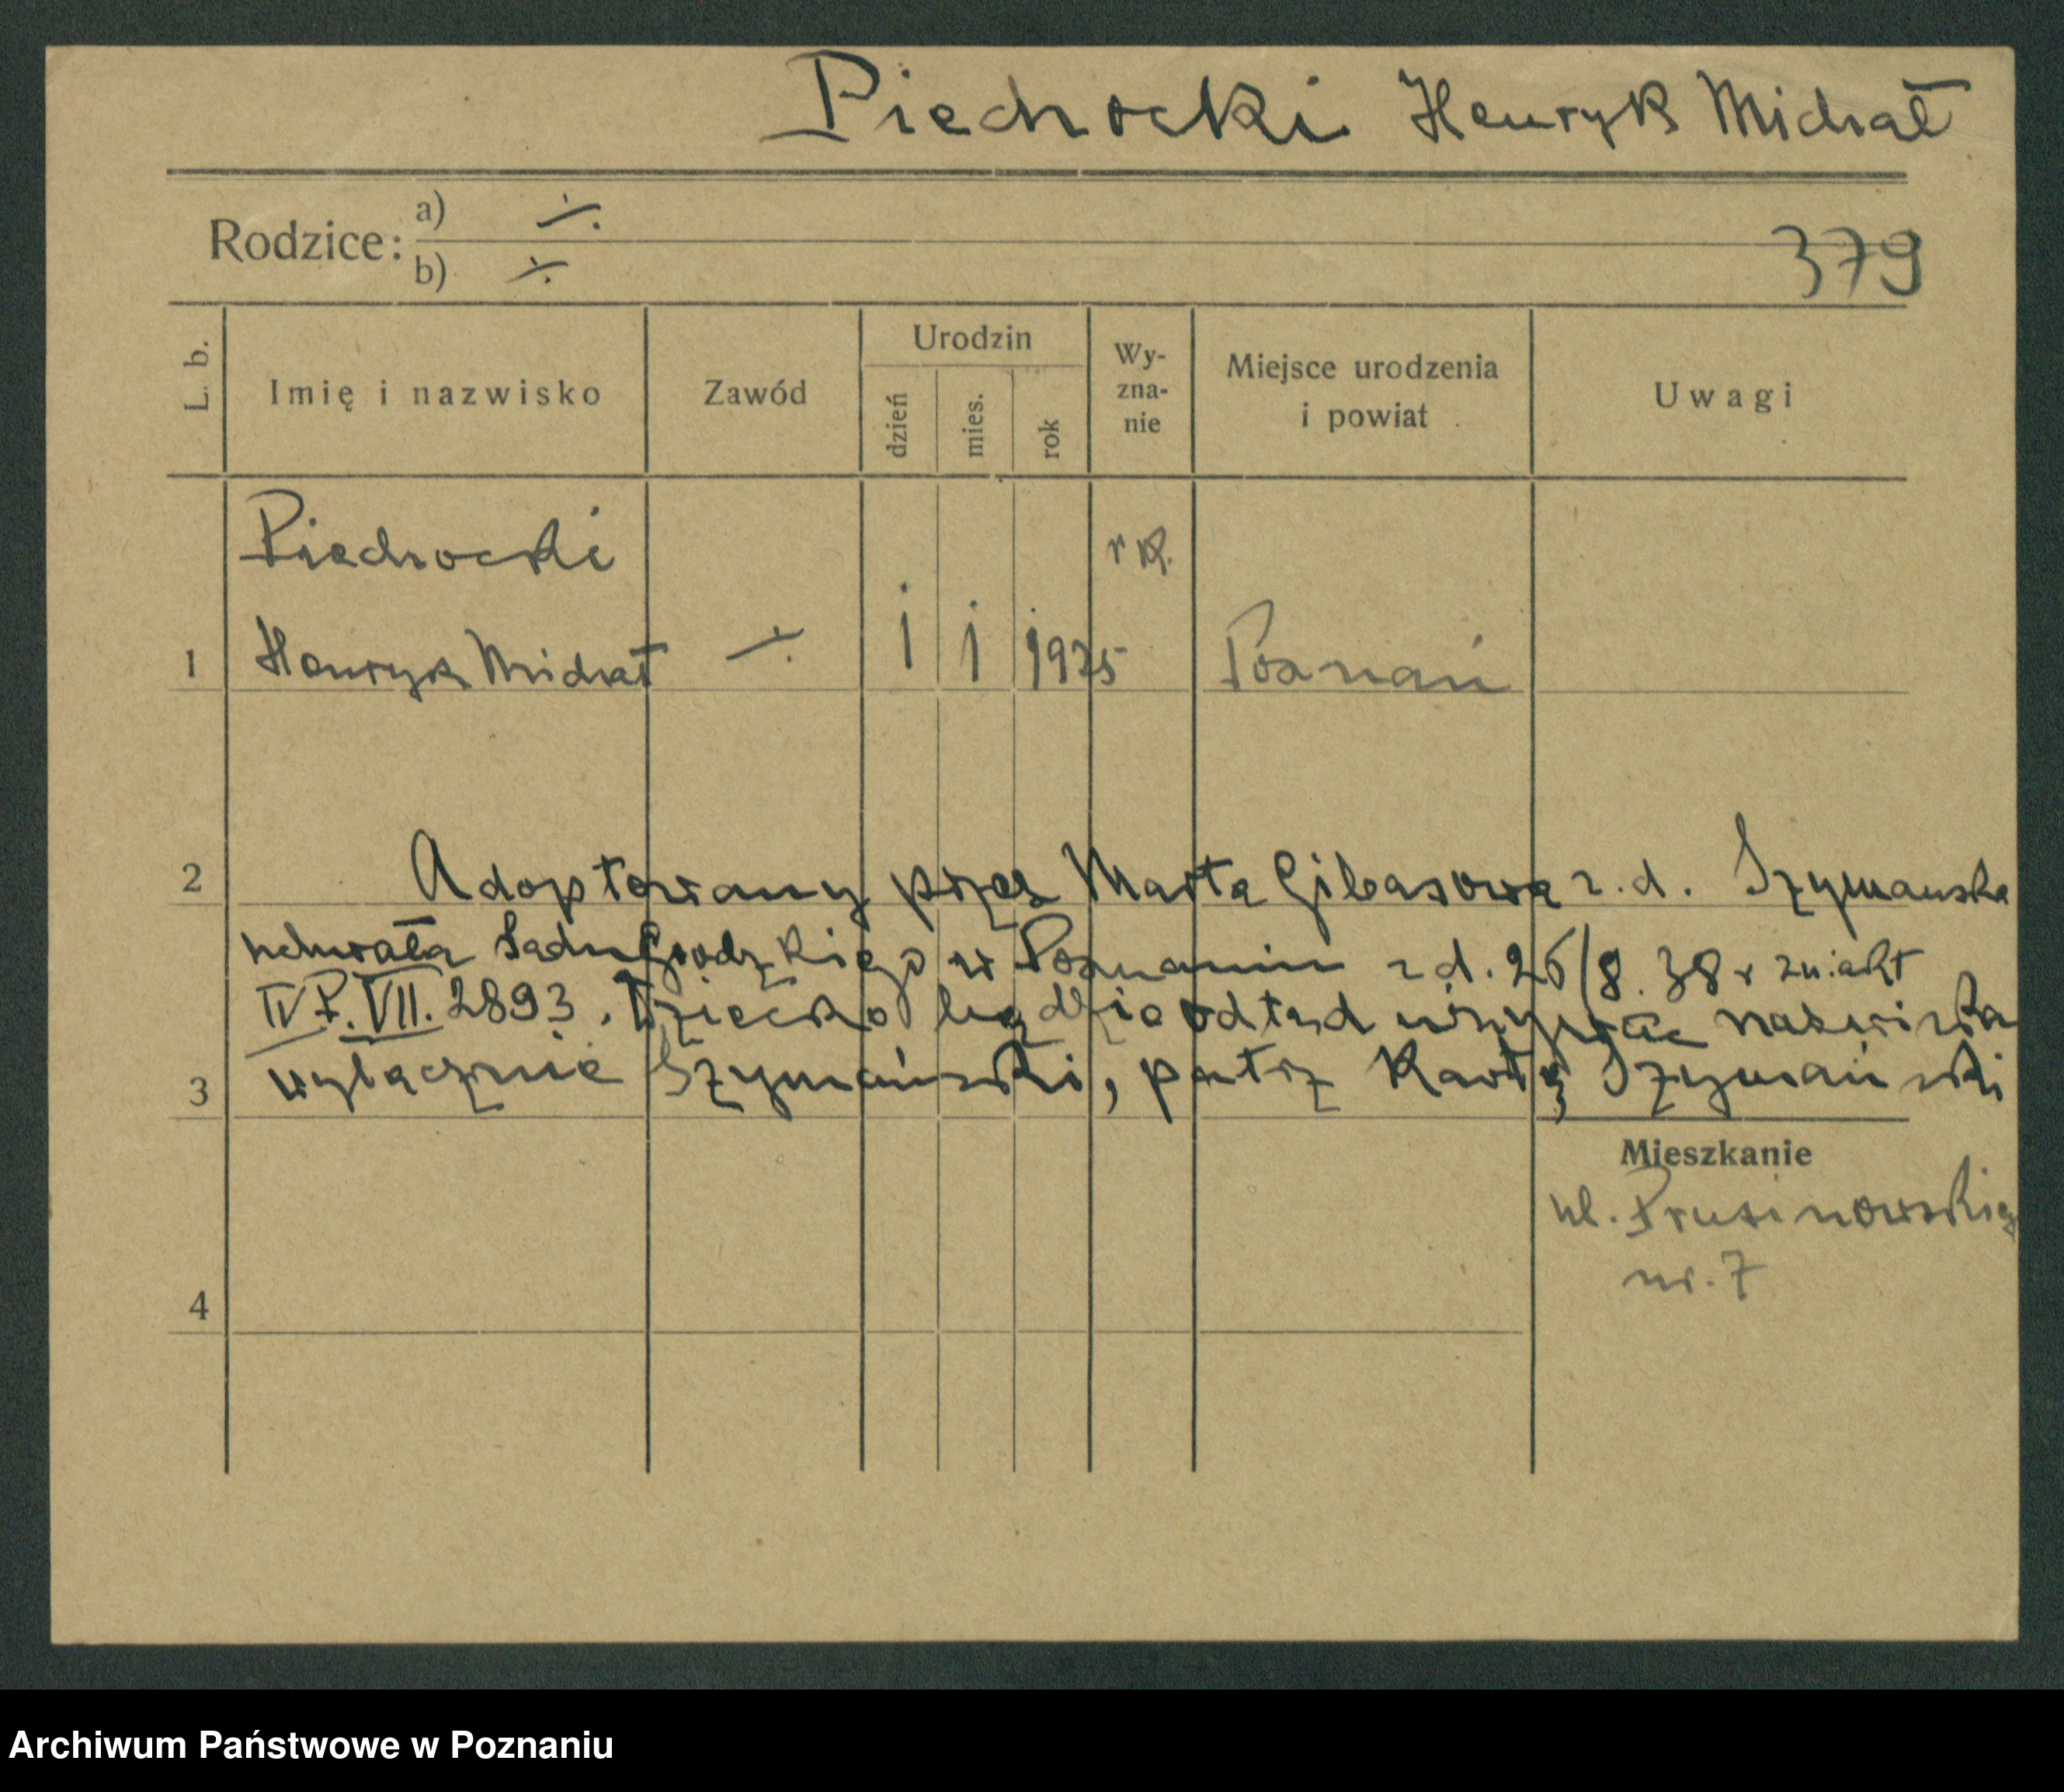 Piechocki Henryk Michał
Rodzice: a) ÷
b) ÷
379
L. b. Imię i nazwisko Zawód Urodzin dzień mies. rok Wy-zna-nie Miejsce urodzenia i powiat Uwagi
Piechocki r K.
1 Henryk Michał ÷ 1 1 1925 Poznań
2 Adoptowany przez Martę Gibasową z. d. Szymańska
uchwałą Sądu Grodzkiego w Poznaniu z d. 26/8. 38 r zn: akt
IV P. VII. 2893. Dziecko będzie odtąd używać nazwiska
3 wyłącznie Szymański, patrz Kartę Szymański
Mieszkanie
ul. Prusinowskieg
nr. 7
4
Archiwum Państwowe w Poznaniu